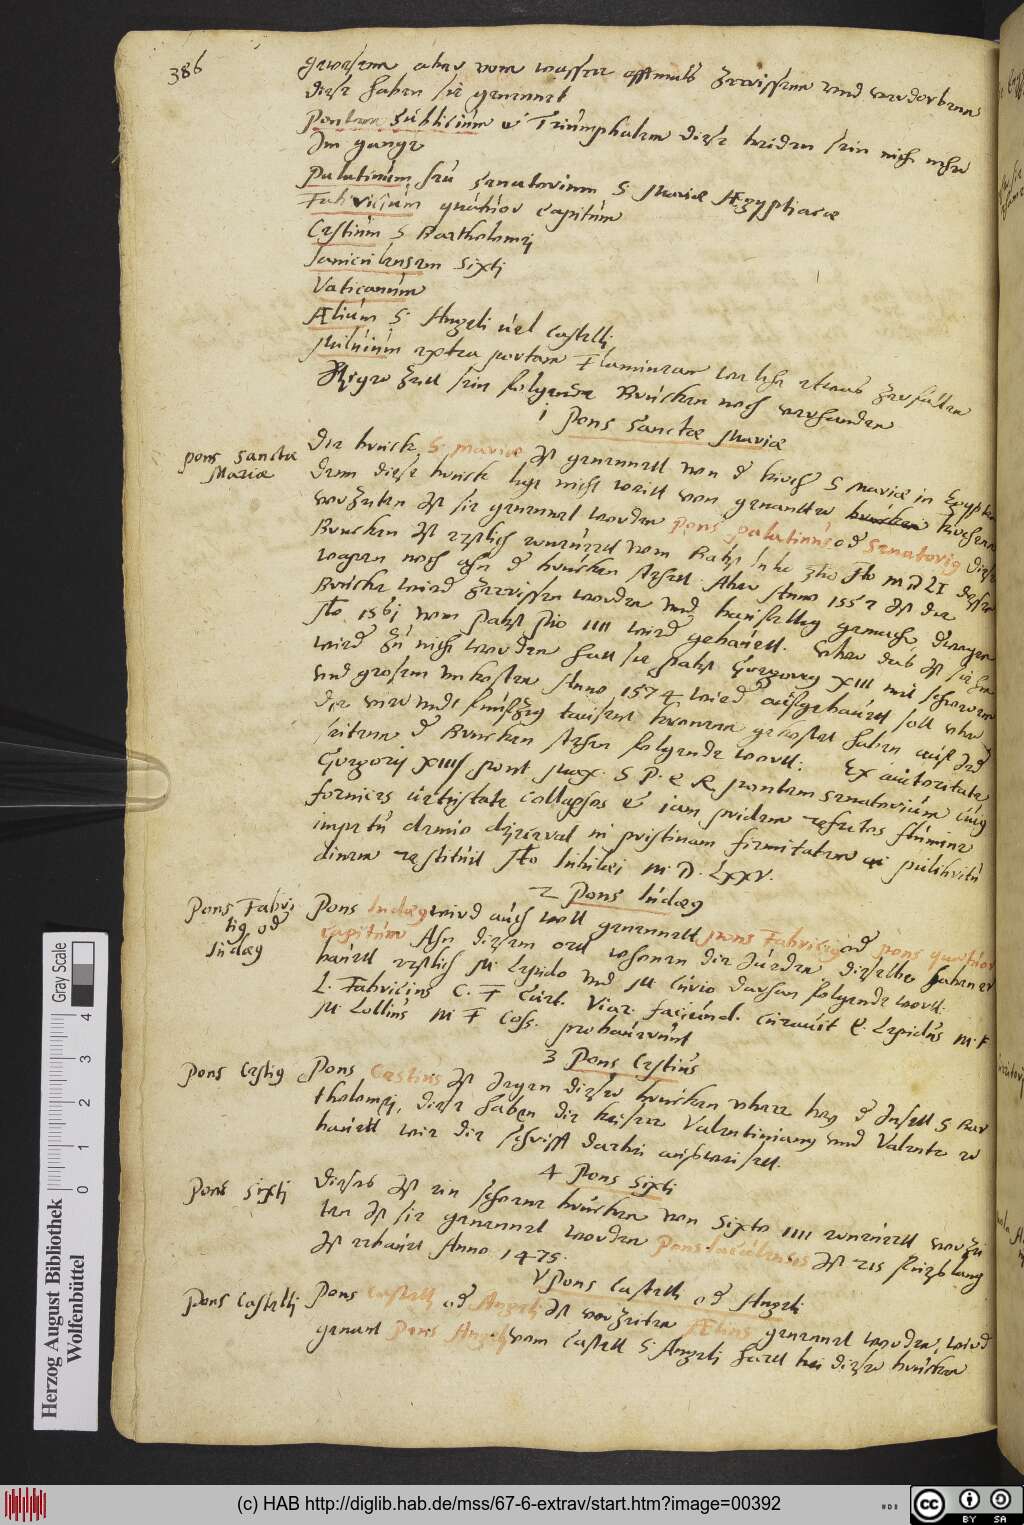 386
gewesenn aber vom wasser offtmals zerrissenn und verdorbenn
diese haben sie genennet
Pontem Sublicium et Triumphalem diese beiden sein nicht mehr
Im gange
Palatinum seu senatorium S Mariæ Ægyptiacæ
Fabricium quatuor Capitum
Cestium S Bartholomej
Janiculensem Sixtj
Vaticanum
Ælium S Angeli vel Castelli
Miluium extra portam Flamineam welche etwas zerfallen
Itziger Zeit sein folgende Brucken noch verhanden
1 Pons Sanctæ Mariæ
pons Sanctæ
Mariæ
Die bruck S Mariæ Ist genennett von der kirch S Mariæ in Egypten
Dann diese bruck ligt nicht weitt von genanter brucken kirchenn
vorzeiten Ist sie genennet worden pons palatinus oder Senatorius diese
Brucken Ist erstlich ernewert vom Babst
wapen noch ahn der brucken stehett. Aber Anno 1557 Ist die
Brucke wieder zerrissen worden und bawfellig gemacht, deswegen
Ao 1561 vom Pabst Pio IIII wieder gebauett.
wieder zu nicht worden hatt sie Pabst Gregorius XIII mit schwerem
und grosem unkosten Anno 1574 wieder aufgebauett soll uber
die vier undt funfzig tausent kronnen gekostet haben auf der
seitenn der Brucken stehen folgende wortt: Ex auctoritate
Gregorij XIII pont Max. S P Q R pontem senatorium cuius
fornices vetustate collapsos et iam pridem refectos fluminis
impetus denuo dejecerat in pristinam firmitatem ac pulchritu
dinem restituit Ao Iubilei M. D. LXXV.
2 Pons Iudæus
Pons Fabri
tius oder
Iudæus
Pons Iudæus wird auch woll genennett pons Fabricius oder pons quatuor
capitum Ahn diesem ort wohnen die Jueden, dieselbe haben er
bauett erstlich M. Lepido und M Curio davhan folgende wortt.
L. Fabricius C. F Curt. Viar. faciund. curavit Q. Lepidus M. F
M. Lollius M F Coss. probaverunt
3 Pons Cestius
Pons Cestius
Pons Cestius Ist Jegen dieser brucken uberr bey der Insell S Bar
tholomej, diese haben die keiser Valentinianus und Valente er
bauett wie die schrifft darbei ausweisett.
4 Pons Sixti
Pons Sixtj
Dieses Ist ein schone brucken von Sixto IIII ernewert vorzei
ten Ist sie genennet worden Pons Janiculensis Ist
Ist erbauet Anno 1475.
V Pons Castelli oder Angeli
Pons Castellj
Pons Castelli oder Angeli Ist vorzeiten Ælius genennet worden, wird
genant Pons Angeli vom Castell S Angeli hartt bei dieser brucken
Herzog August Bibliothek
Wolfenbüttel
Gray Scale
0 1 2 3 4
(c) HAB http://diglib.hab.de/mss/67-6-extrav/start.htm?image=00392
cc BY SA